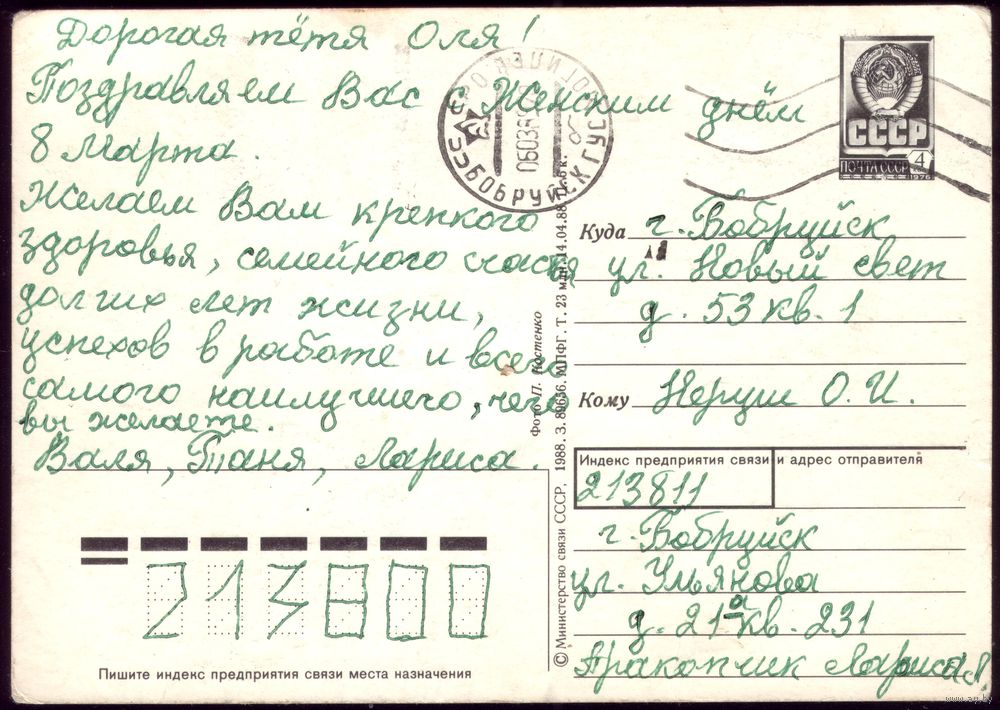 Дорогая тётя Оля!
Поздравляем Вас с Женским днём
8 Марта.
Желаем Вам крепкого
здоровья, семейного счастья
долгих лет жизни,
успехов в работе и всего
самого наилучшего, чего
вы желаете.
Валя, Таня, Лариса.
БОБРУЙСК ГУС
СССР
ПОЧТА СССР 4
1976
Куда г. Бобруйск
ул. Новый свет
д. 53 кв. 1
Кому Неруш О. И.
Индекс предприятия связи и адрес отправителя
213811
г. Бобруйск
ул. Ульянова
д. 21а кв. 231
Аракопчик Лариса
213800
Пишите индекс предприятия связи места назначения
© Министерство связи СССР, 1988. З. 89656. МПФГ. Т. 23 млн. 14.04.88.
Фото П. Костенко
www.ay.by